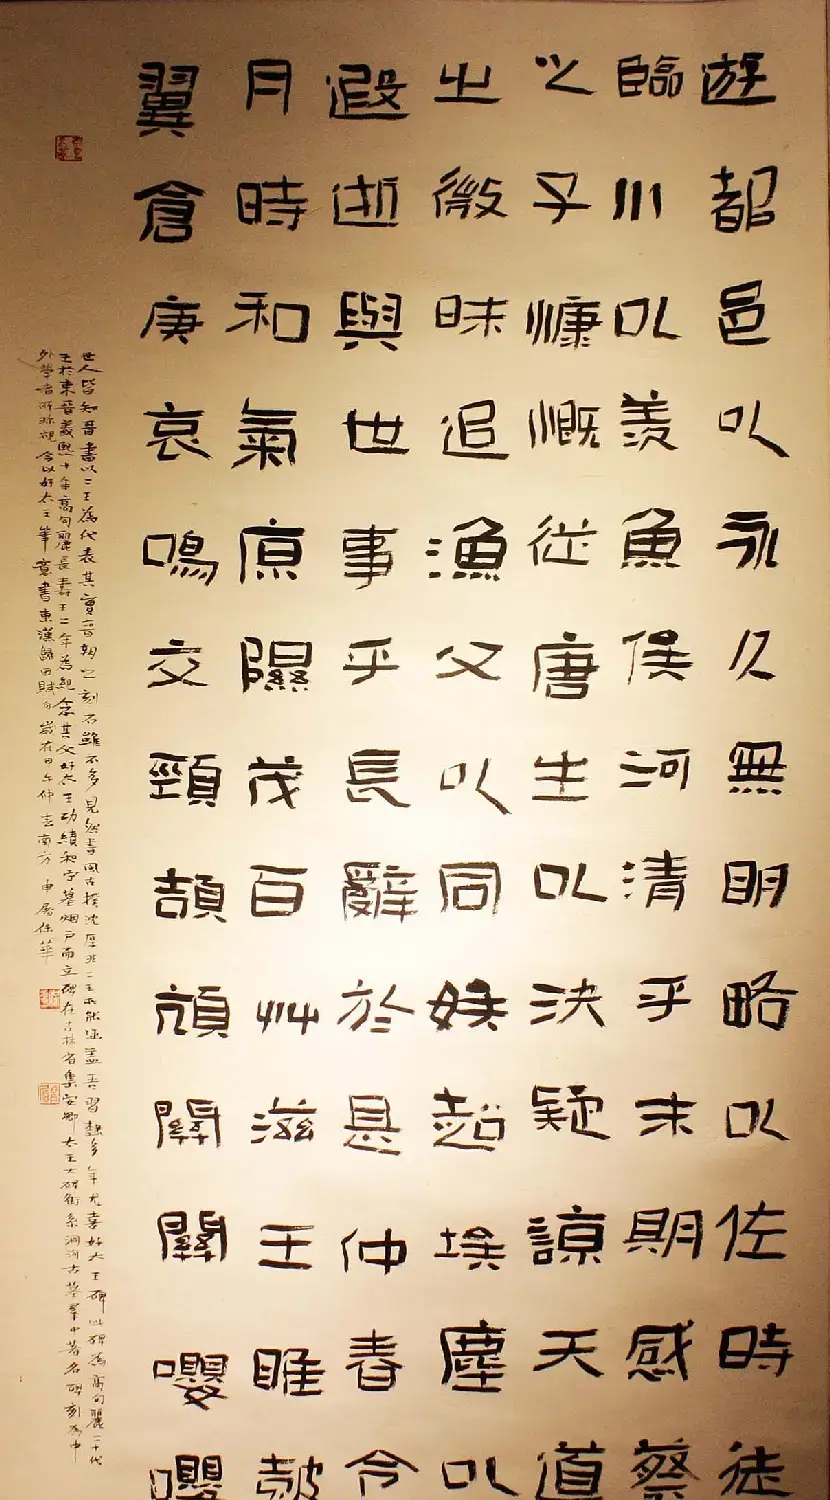 遊都邑以永久無明略以佐時徒
臨川以羨魚俟河清乎未期感蔡
之子慷慨從唐生以決疑諒天道
之微昧追漁父以同嬉超埃塵以
遐逝與世事乎長辭於是仲春令
月時和氣原隰茂百艸滋王雎鼓
翼倉庚哀鳴交頸頡頏關關嚶嚶
世人皆知晉書以二王為代表其實晉朝之刻石雖不多見然書風古樸沈厚非二王所能涵蓋吾習隸多年尤喜好太王碑此碑為高句麗二十代
王於東晉義熙十年高句麗長壽王二年為紀念其父好太王功績和守墓烟戶而立碑在吉林省集安鄉太王大碑街系洞溝古墓羣中著名碑刻為中
外學者所珍視今以好太王筆意書東漢歸田賦句歲在甲午仲春南方申屠佳華